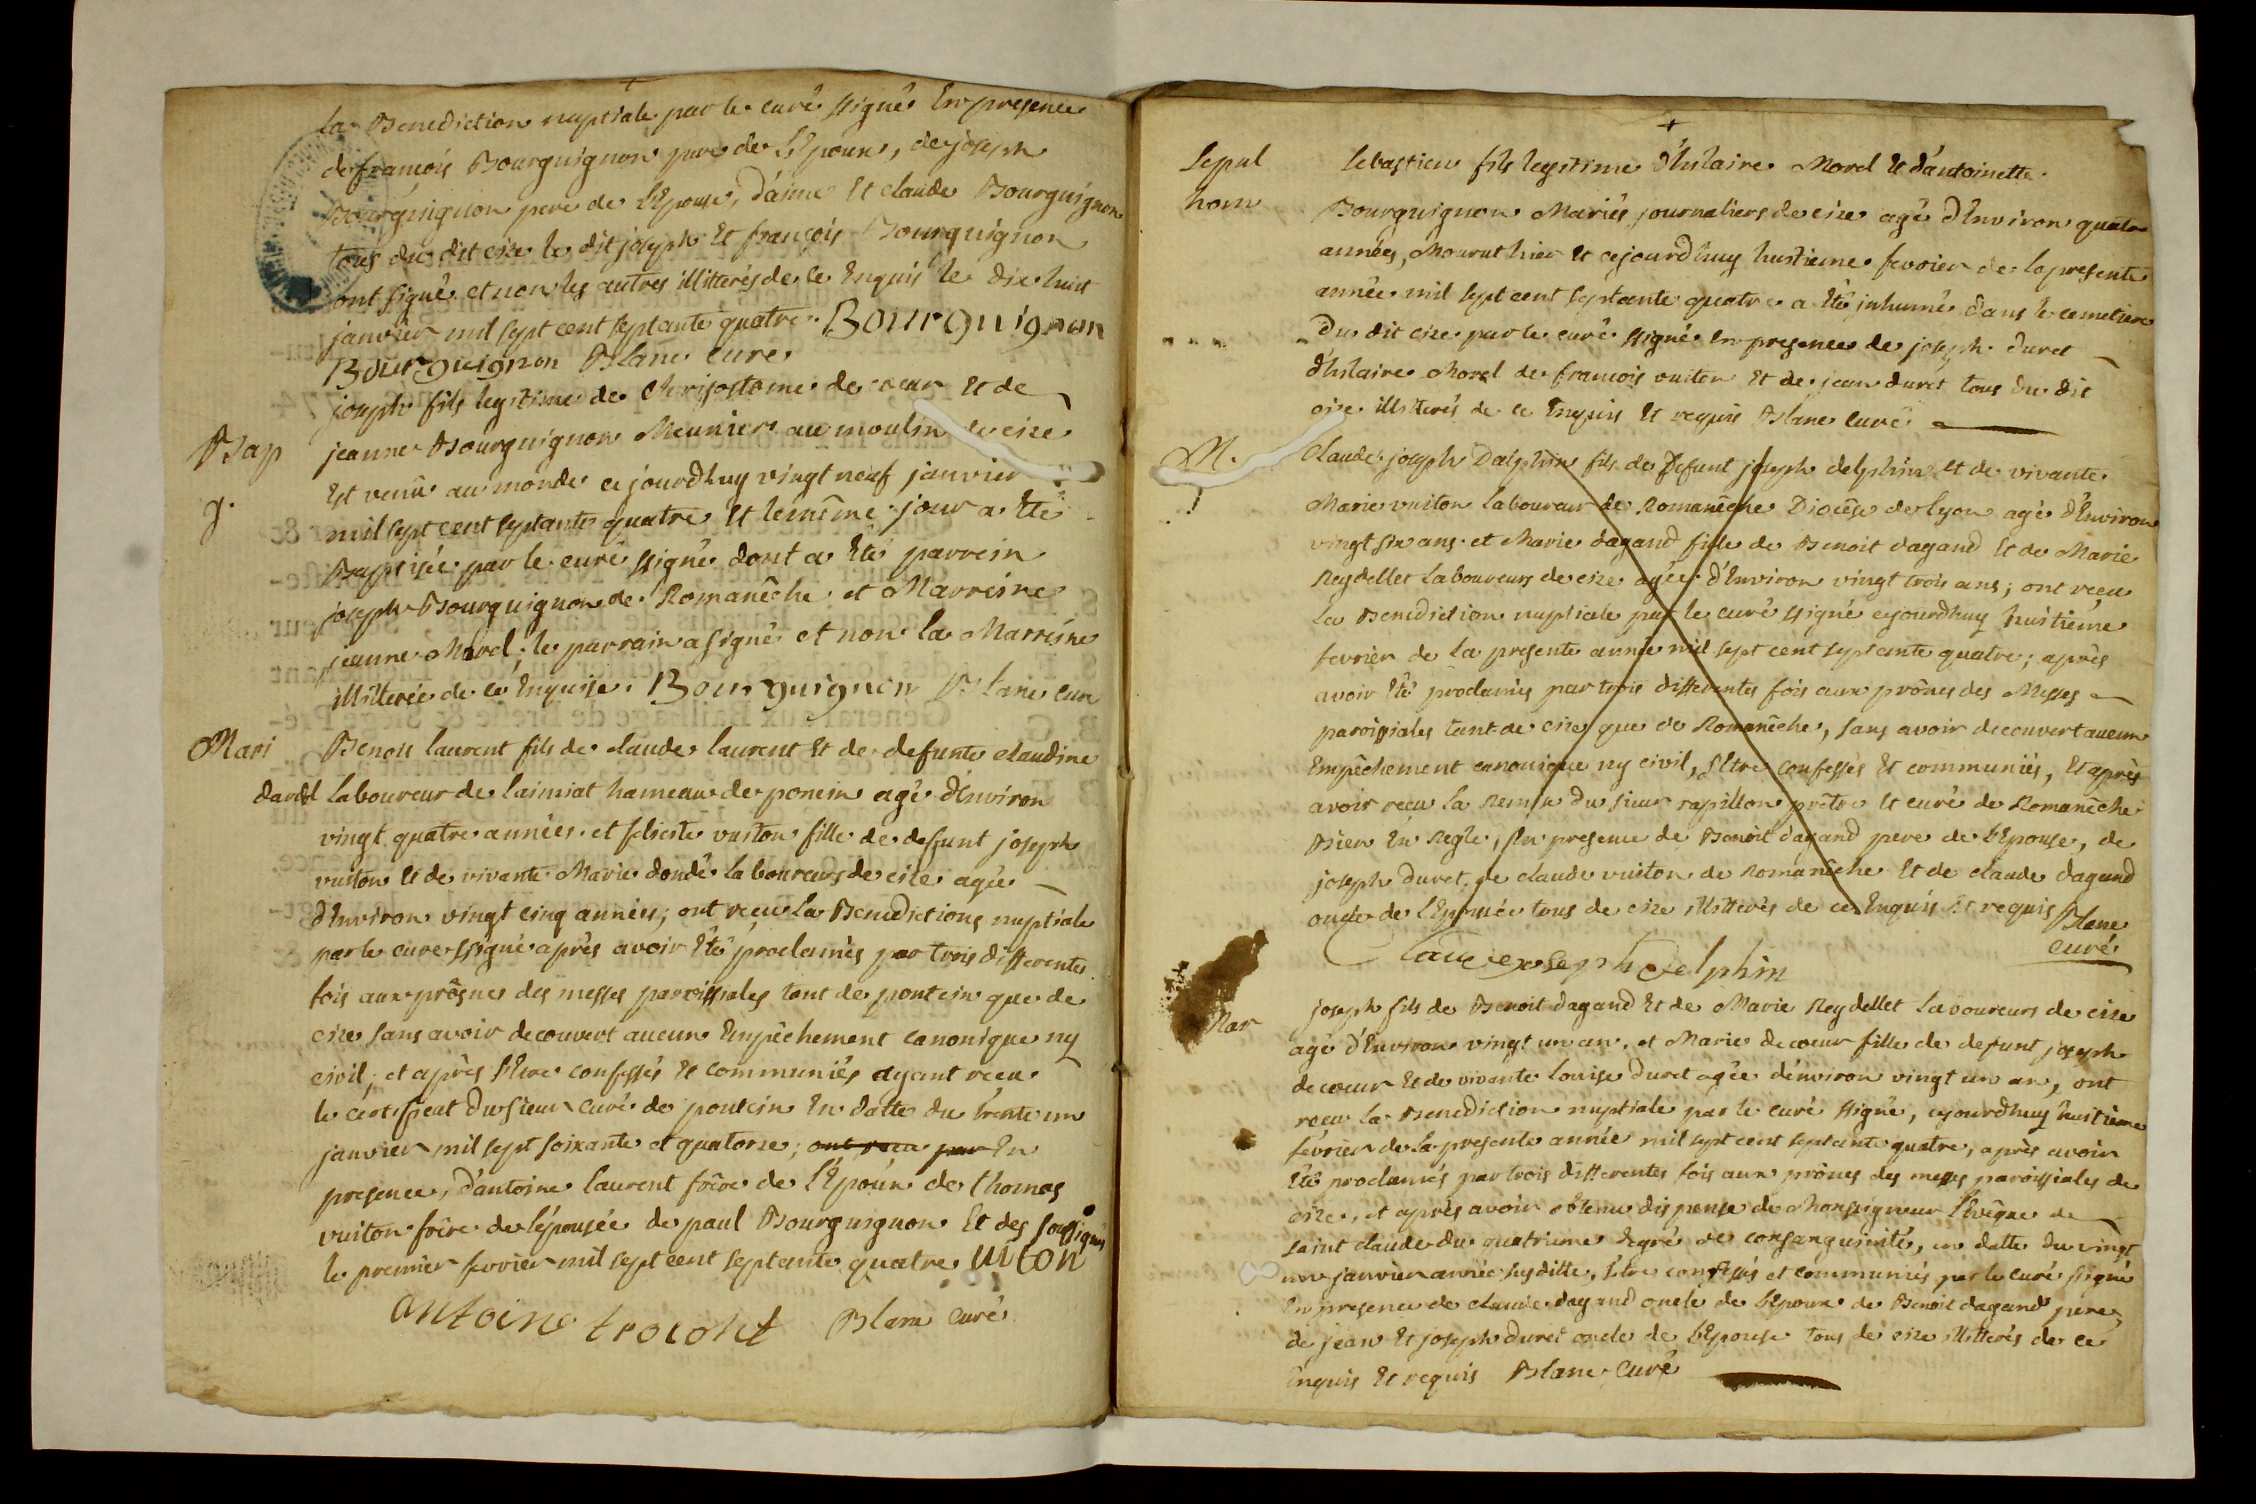 la Benediction nuptiale par le curé ssigné En presence
de francois Bourguignon pere de L'Epoux, de joseph
Bourguignon pere de L'Epouse, d'aimé Et claude Bourguignon
tous du dit cize le dit joseph Et françois Bourguignon
ont signé et non les autres illitterés de ce Enquis le dix huit
janvier mil sept cent septante quatre. Bourguignon
Bourguignon Blanc curé
joseph fils legitime de Chrisostome de coeur Et de
Bap jeanne Bourguignon Meunier au moulin de cize
g. Est venu au monde ce jourdhuy vingt neuf janvier
mil sept cent septante quatre Et le même jour a Eté
Baptisée par le curé ssigné dont a Eté parrein
joseph Bourguignon de Romanêche et Marreine
jeanne Morel; le parrain a signé et non la Marreine
illiterée de ce Enquise. Bourguignon Blanc cur
Mari Benoit laurent fils de claude laurent Et de defunte claudine
dardel laboureur de laimiat hameau de poncin agé d'Environ
vingt quatre années et feliciste vuiton fille de defunt joseph
vuiton Et de vivante Marie dondé laboureurs de cize agée
d'Environ vingt cinq années; ont recu la Benedictions nuptiale
par le curé ssigné après avoir Eté proclamés par trois differentes
fois aux prôsnes des messes paroissiales tant de pontcin que de
cize sans avoir decouvert aucun Empêchement canonique ny
civil; et après s'Etre confessés Et communiés ayant recu
le certificat du sieur curé de pontcin En datte du trente un
janvier mil sept soixante et quatorze; ont recu par En
presence, d'antoine laurent frère de L'Epoux de thomas
vuiton frère de l'épousée de paul Bourguignon Et des soussignés
le premier fevrier mil sept cent septante quatre uiton
antoine Blanc curé
Sepul Sebastien fils legitime d'hilaire Morel Et d'antoinette
hom Bourguignon Mariés, journaliers de cize agé d'Environ quatre
années, Mourut hier Et cejourdhuy huitieme fevrier de la presente
année mil sept cent septante quatre a Eté inhumé dans le cemetiere
du dit cize par le curé ssigné En presence de joseph duret
d'hilaire Morel de francois vuiton Et de jean duret tous du dit
cize illitterés de ce Enquis Et requis Blanc curé
M. Claude joseph Dalphin fils de Defunt joseph delphin Et de vivante
Marie vuiton laboureur de Romanêche Diocêse de lyon agé d'Environ
vingt six ans et Marie dagand fille de Benoit dagand Et de Marie
Reydellet laboureurs de cize agée d'Environ vingt trois ans; ont recu
la Benediction nuptiale par le curé ssigné cejourdhuy huitième
fevrier de la presente année mil sept cent septante quatre; après
avoir Eté proclamés par trois differentes fois aux prônes des Messes
paroissiales tant de cize que de Romanêche, sans avoir decouvert aucun
Empêchement canonique ny civil, s'Etre confessés Et communiés, Et après
avoir recu la Remise du sieur rapillon prêtre Et curé de Romanêche
Bien En Regle, En presence de Benoit dagand pere de L'Epouse, de
joseph duret, de claude vuiton de Romanêche Et de claude dagand
oncle de L'Epousée tous de cize illitterés de ce Enquis Et requis Blanc
curé
Claude joseph delphin
Mar joseph fils de Benoit dagand Et de Marie Reydellet laboureurs de cize
agé d'Environ vingt un an, et Marie decoeur fille de defunt joseph
decoeur Et de vivante louise duret agée d'environ vingt un an, ont
recu la Benediction nuptiale par le curé ssigné, cejourdhuy huitième
février de la presente année mil sept cent septante quatre, après avoir
Eté proclamés par trois differentes fois aux prônes des messes paroissiales de
cize, et après avoir obtenu dispense de Monseigneur l'Evêque de
saint claude du quatrieme degré de consanguinité, en datte du vingt
un janvier année susditte, s'Etre confessés et communiés par le curé ssigné
En presence de claude dagand oncle de L'Epoux de Benoit dagand pere,
de jean Et joseph duret oncle de L'Epouse tous de cize illitterés de ce
Enquis Et requis Blanc Curé